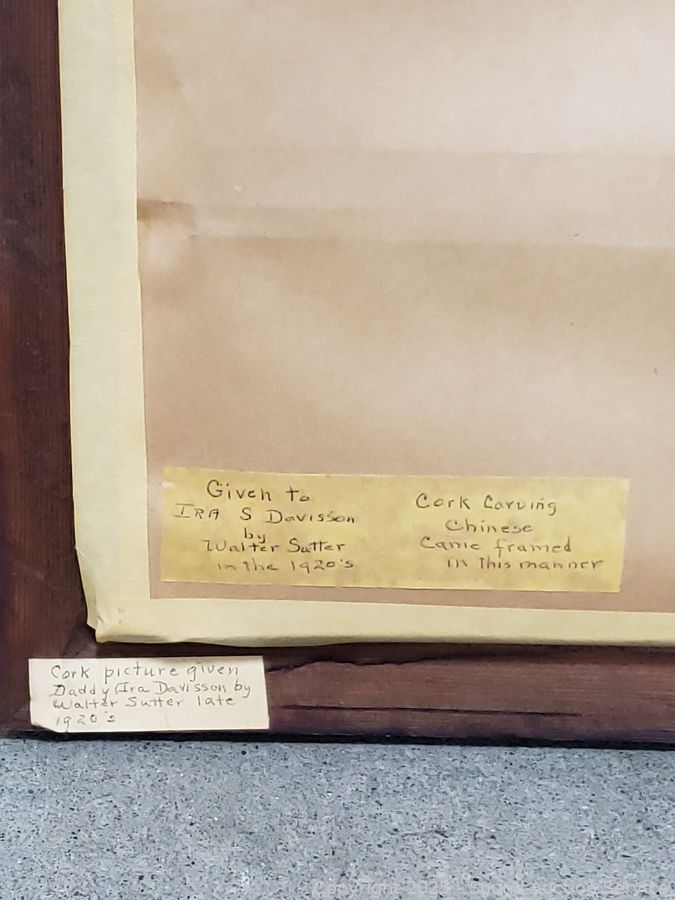 Given to
IRA S Davisson
by
Walter Sutter
in the 1920's
Cork Carving
Chinese
Came framed
in this manner
Cork picture given
Daddy (Ira Davisson by
Walter Sutter late
1920's
Copyright 2023 - Sound Auction Service